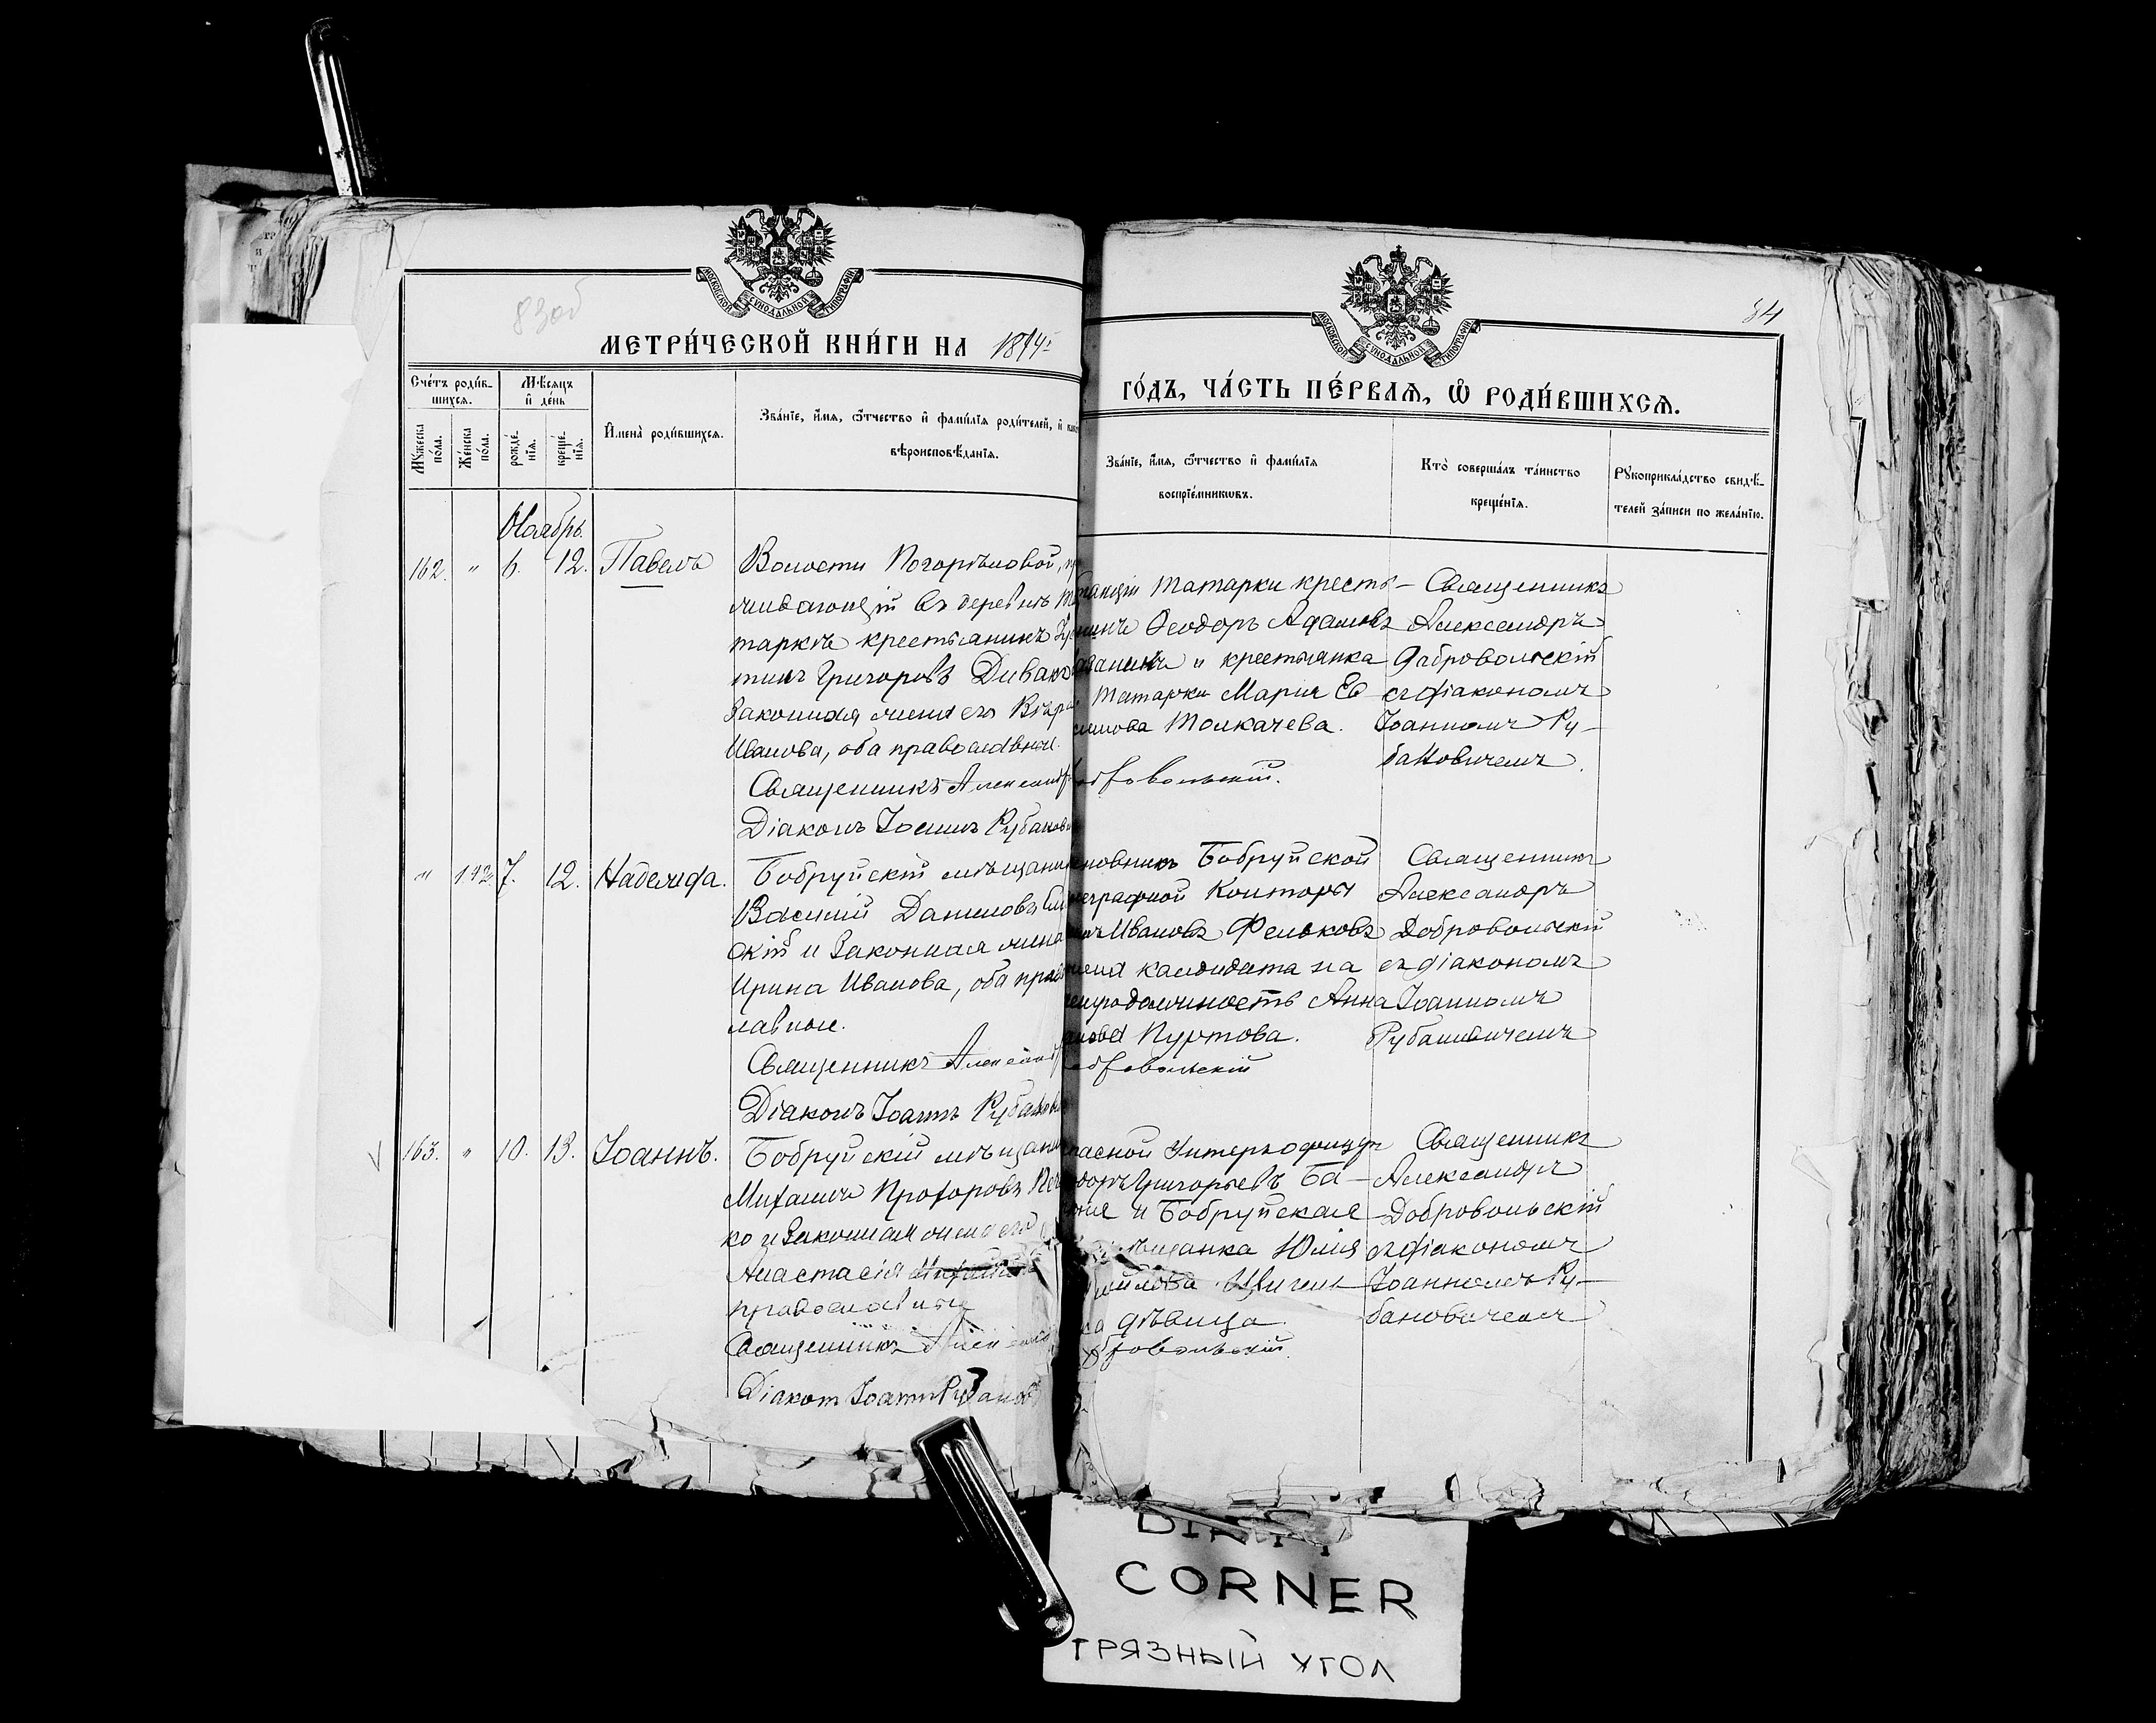 83об
84
МОСКОВСКОЙ СѴНОДАЛЬНОЙ ТИПОГРАФІИ
МОСКОВСКОЙ СѴНОДАЛЬНОЙ ТИПОГРАФІИ
МЕТРИ́ЧЕСКОЙ КНИ́ГИ НА
ГО́ДЪ, ЧА́СТЬ ПЕ́РВАѦ, Ѡ҆ РОДИ́ВШИХСѦ.
Сче́тъ роди́в-
шихсѧ.
Мꙋ́жеска по́ла.
Же́нска по́ла.
Мѣ́сѧцъ
и҆ де́нь
рожде́-
нїѧ.
креще́-
нїѧ.
И҆мена̀ роди́вшихсѧ.
Зва́нїе, и҆́мѧ, ѻ҆́тчество и҆ фами́лїѧ роди́телей, и҆
вѣроисповѣ́данїѧ.
Зва́нїе, и҆́мѧ, ѻ҆́тчество и҆ фами́лїѧ
воспрїе́мникѡвъ.
Кто̀ соверша́лъ та́инство
креще́нїѧ.
Рꙋкоприкла́дство свидѣ́-
телей за́писи по жела́нїю.
Ноябрь.
162. " 6. 12. Павелъ
Волости Погорѣловой,
живающій въ деревнѣ
таркѣ крестьянинъ
тинъ Григоровъ Диван
Законная жена его Вѣра
Иванова, оба православные.
Священникъ Александр
Діаконъ Іоаннъ Рубанов
Татарки кресть-
Ѳеодоръ Адамовъ
и крестьянка
Татарки Марія Ев
Толкачева.
обровольскій.
Священникъ
Александръ
Добровольскій
съ діакономъ
Іоанномъ Ру-
бановичемъ.
" 142 7. 12. Надежда.
Бобруйскій мѣщанин
Василій Даниловъ
скій и Законная жена
Ирина Иванова, оба прав
лавные.
Священникъ Александ
Діаконъ Іоаннъ Рубанов
иновникъ Бобруйской
леграфной Конторы
Ивановъ Фельковъ
жена кандидата на
должность Анна
Пуртова.
обровольскій
Священникъ
Александръ
Добровольскій
съ діакономъ
Іоанномъ
Рубановичемъ
163. " 10. 13. Іоаннъ.
Бобруйскій мѣщани
Михаилъ Прохоровъ
ко и Законная жена его
Анастасія
православные
Священникъ
Діаконъ Іоаннъ Рубанов
пасной Унтеръ-офицеръ
Григорьевъ Ба-
и Бобруйская
мѣщанка Юлія
дѣвица
обровольскій.
Священникъ
Александръ
Добровольскій
съ діакономъ
Іоанномъ Ру-
бановичемъ
CORNER
ГРЯЗНЫЙ УГОЛ